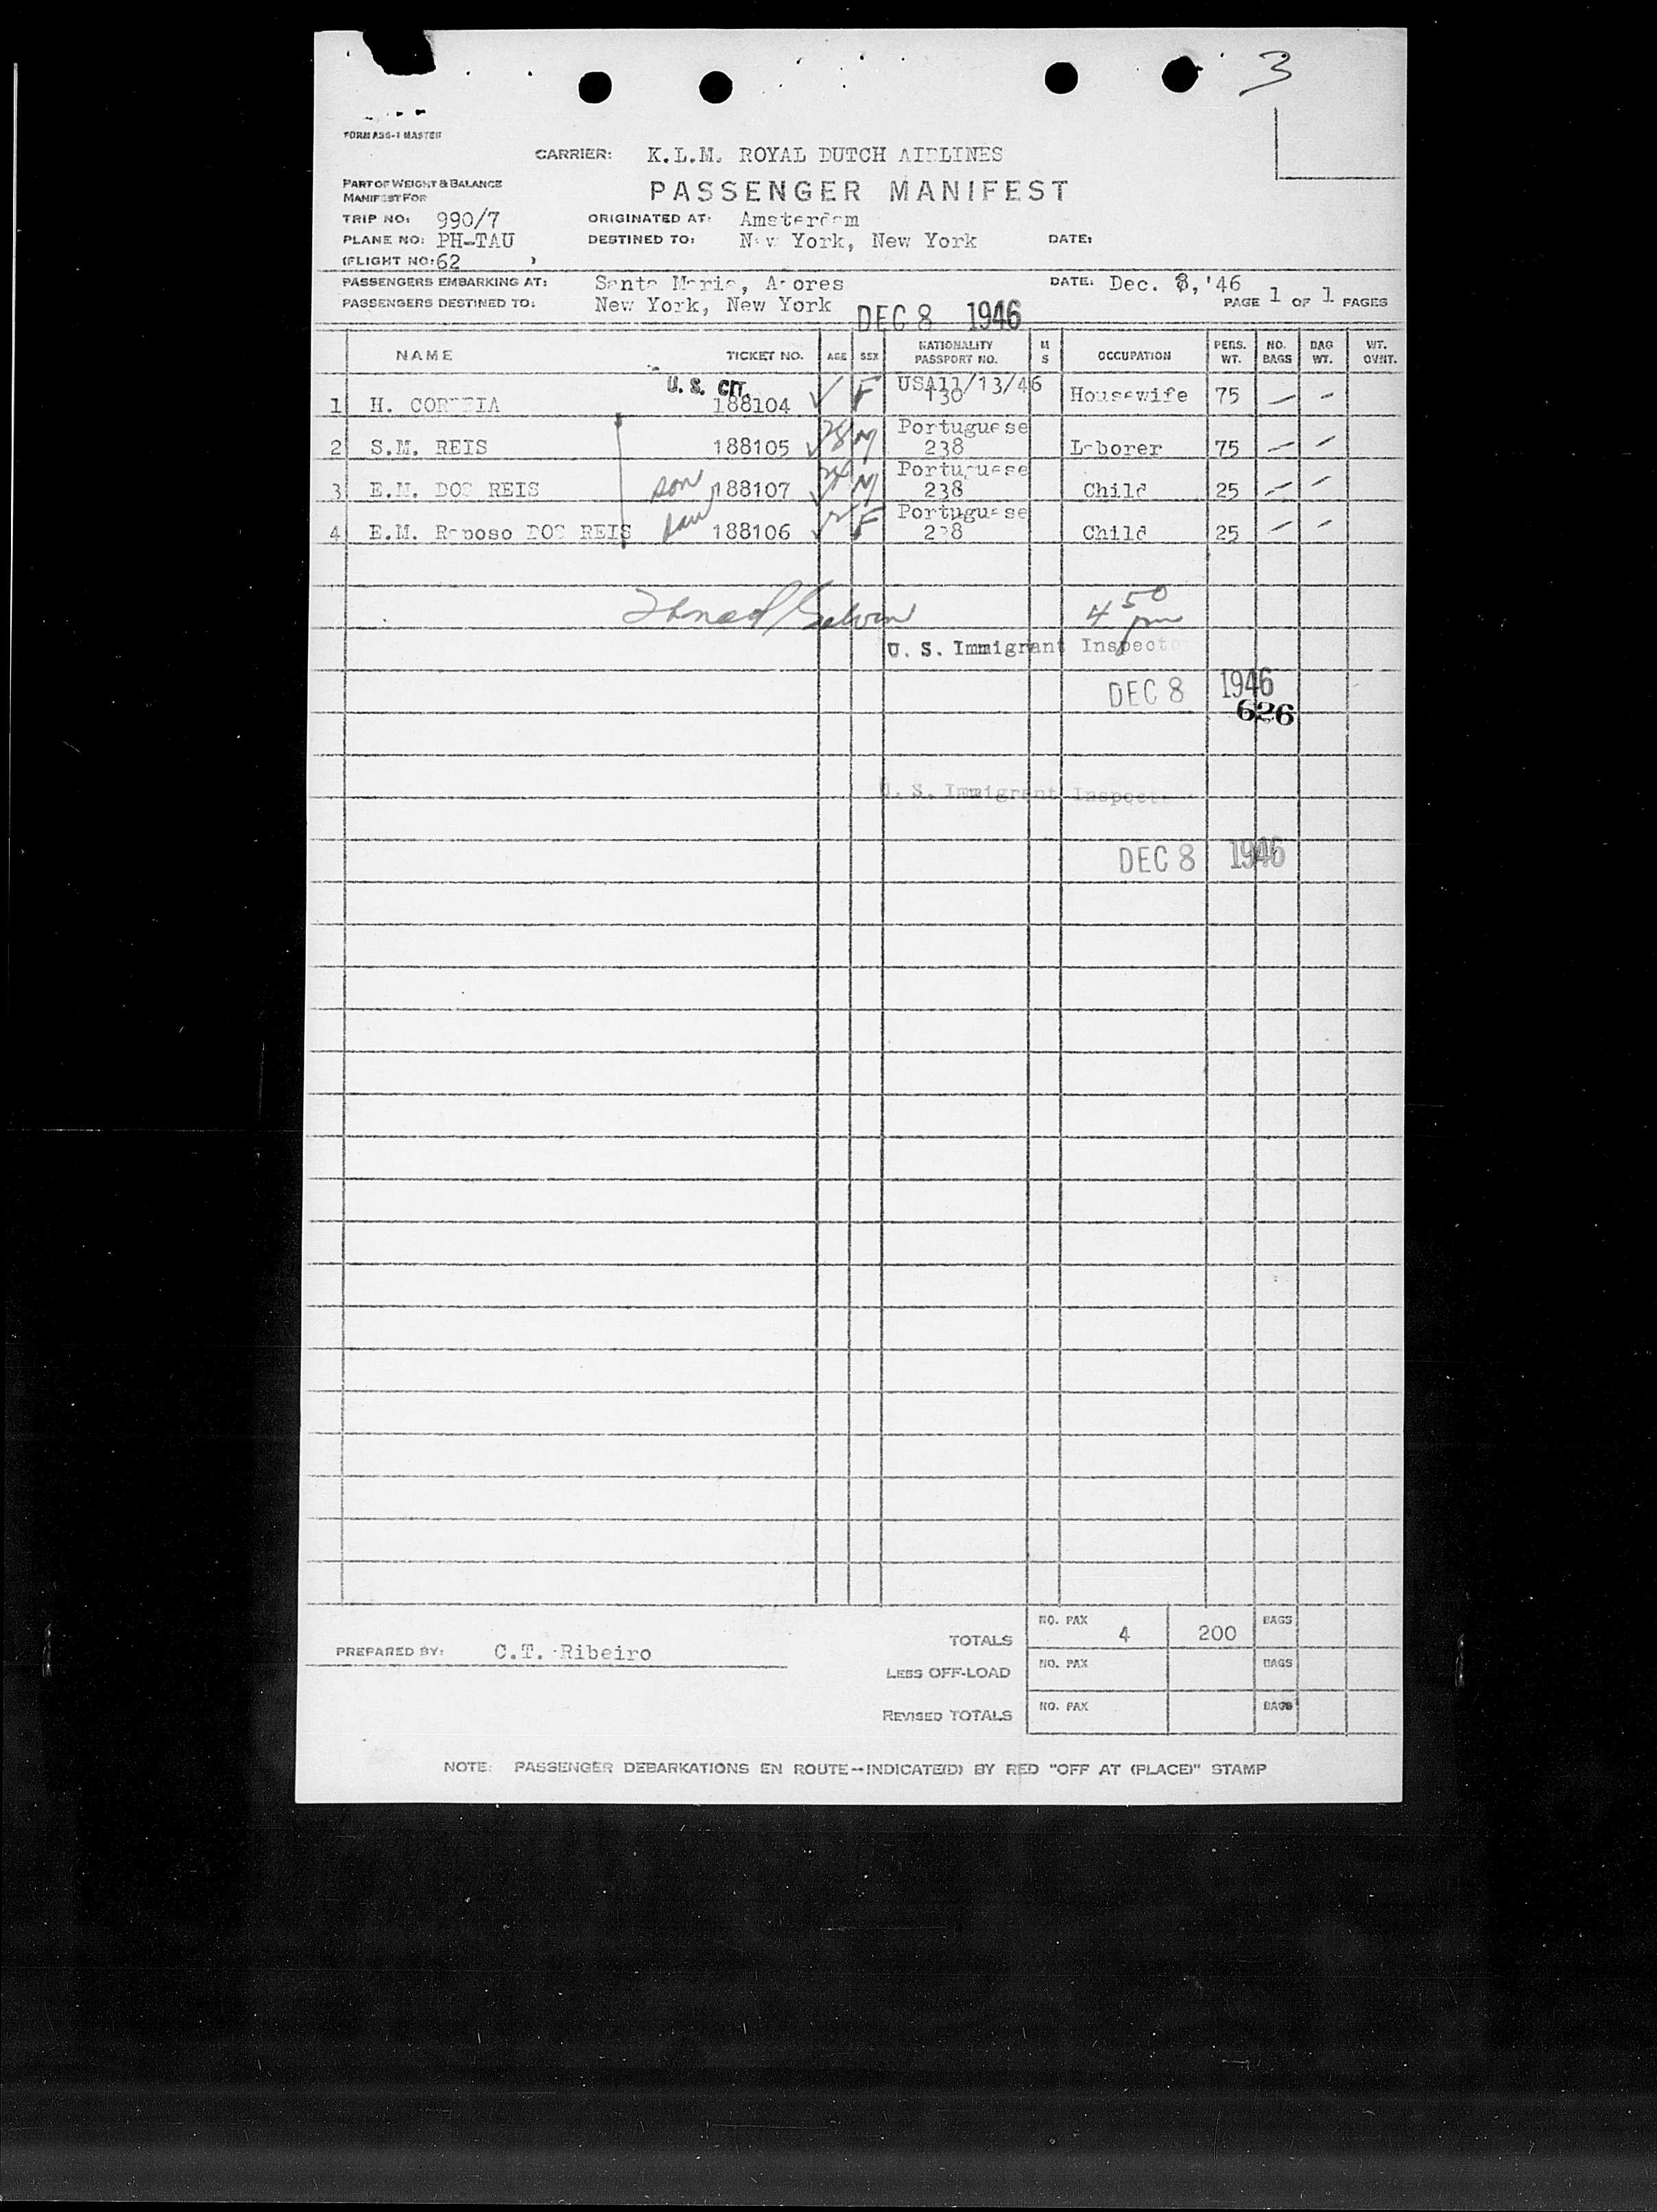 3
FORM ASG-1 MASTER
CARRIER: K.L.M. ROYAL DUTCH AIRLINES
PART OF WEIGHT & BALANCE
MANIFEST FOR
PASSENGER MANIFEST
TRIP NO: 990/7 ORIGINATED AT: Amsterdam
PLANE NO: PH-TAU DESTINED TO: New York, New York DATE:
(FLIGHT NO: 62 )
PASSENGERS EMBARKING AT: Santa Maria, Azores DATE: Dec. 8, '46
PASSENGERS DESTINED TO: New York, New York DEC 8 1946 PAGE 1 OF 1 PAGES
NAME TICKET NO. AGE SEX NATIONALITY PASSPORT NO. M S OCCUPATION PERS. WT. NO. BAGS BAG WT. WT. OVNT.
U. S. CIT. USA11/13/46
1 H. CORREIA 188104 ✓ F 130 Housewife 75 — -
Portuguese
2 S.M. REIS 188105 ✓ 28 M 238 Laborer 75 — -
Portuguese
3 E.M. DOS REIS son 188107 ✓ M 238 Child 25 — -
Portuguese
4 E.M. Raposo DOS REIS 188106 ✓ F 238 Child 25 — -
4 50 pm
U. S. Immigrant Inspector
DEC 8 1946
626
U. S. Immigrant Inspector
DEC 8 1946
PREPARED BY: C.T. Ribeiro
TOTALS NO. PAX 4 200 BAGS
LESS OFF-LOAD NO. PAX BAGS
REVISED TOTALS NO. PAX BAGS
NOTE: PASSENGER DEBARKATIONS EN ROUTE--INDICATE(D) BY RED "OFF AT (PLACE)" STAMP